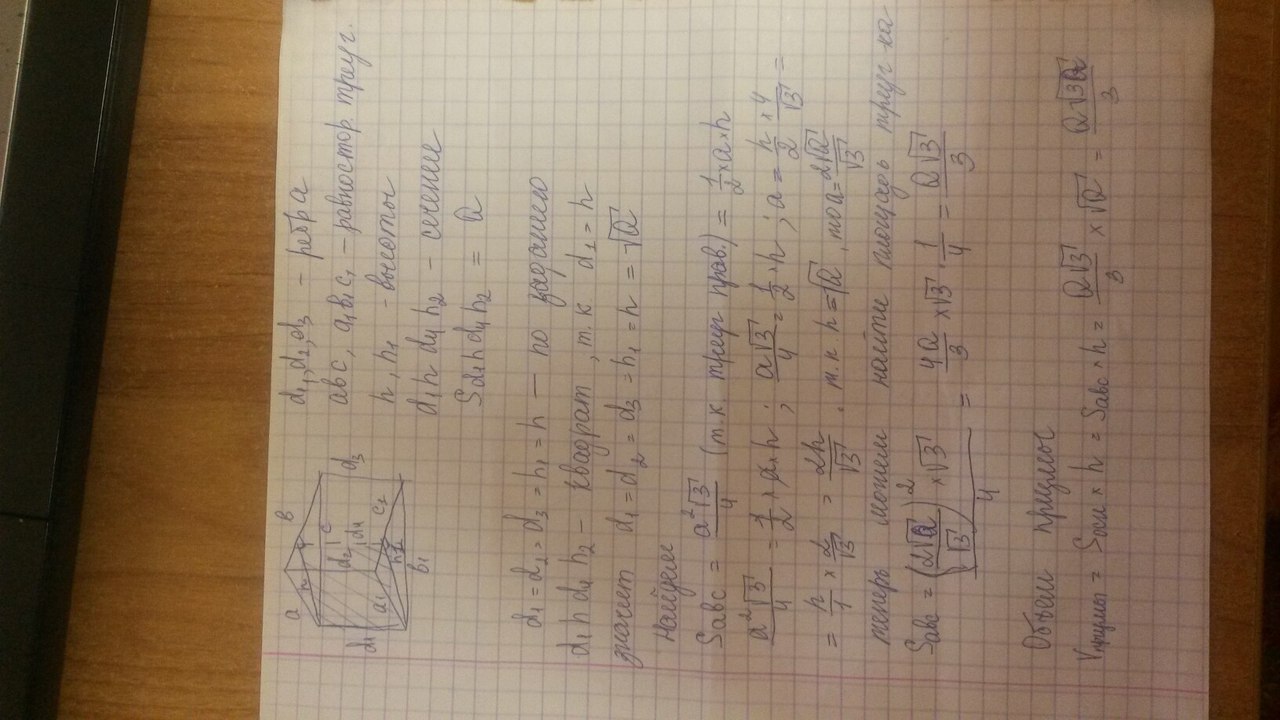 a
b
c
h
d₁
d₂
d₃
d₄
a₁
h₂
c₁
b₁
d₁, d₂, d₃ – ребра
abc, a₁b₁c₁ – равностор. треуг.
h, h₁ – высоты
d₁ h d₄ h₂ – сечение
Sd₁hd₄h₂ = Q
d₁ = d₂ = d₃ = h₁ = h — по заданию
d₁ h d₄ h₂ – квадрат, т.к d₁ = h
значит d₁ = d₂ = d₃ = h₁ = h = √Q
Найдем
Sabc = a²√3/4 (т.к. треуг прав.) = 1/2 × a × h
a²√3/4 = 1/2 × a × h ; a√3/4 = 1/2 × h ; a = h/2 × 4/√3 =
= h/1 × 2/√3 = 2h/√3 . т.к. h = √Q , то a = 2√Q/√3
теперь можем найти площадь треуг-ка
Sabc = (2√Q/√3)² × √3/4 = 4Q/3 × √3 · 1/4 = Q√3/3
Объем призмы
Vпризмы = Sосн × h = Sabc × h = Q√3/3 × √Q = Q√3Q/3